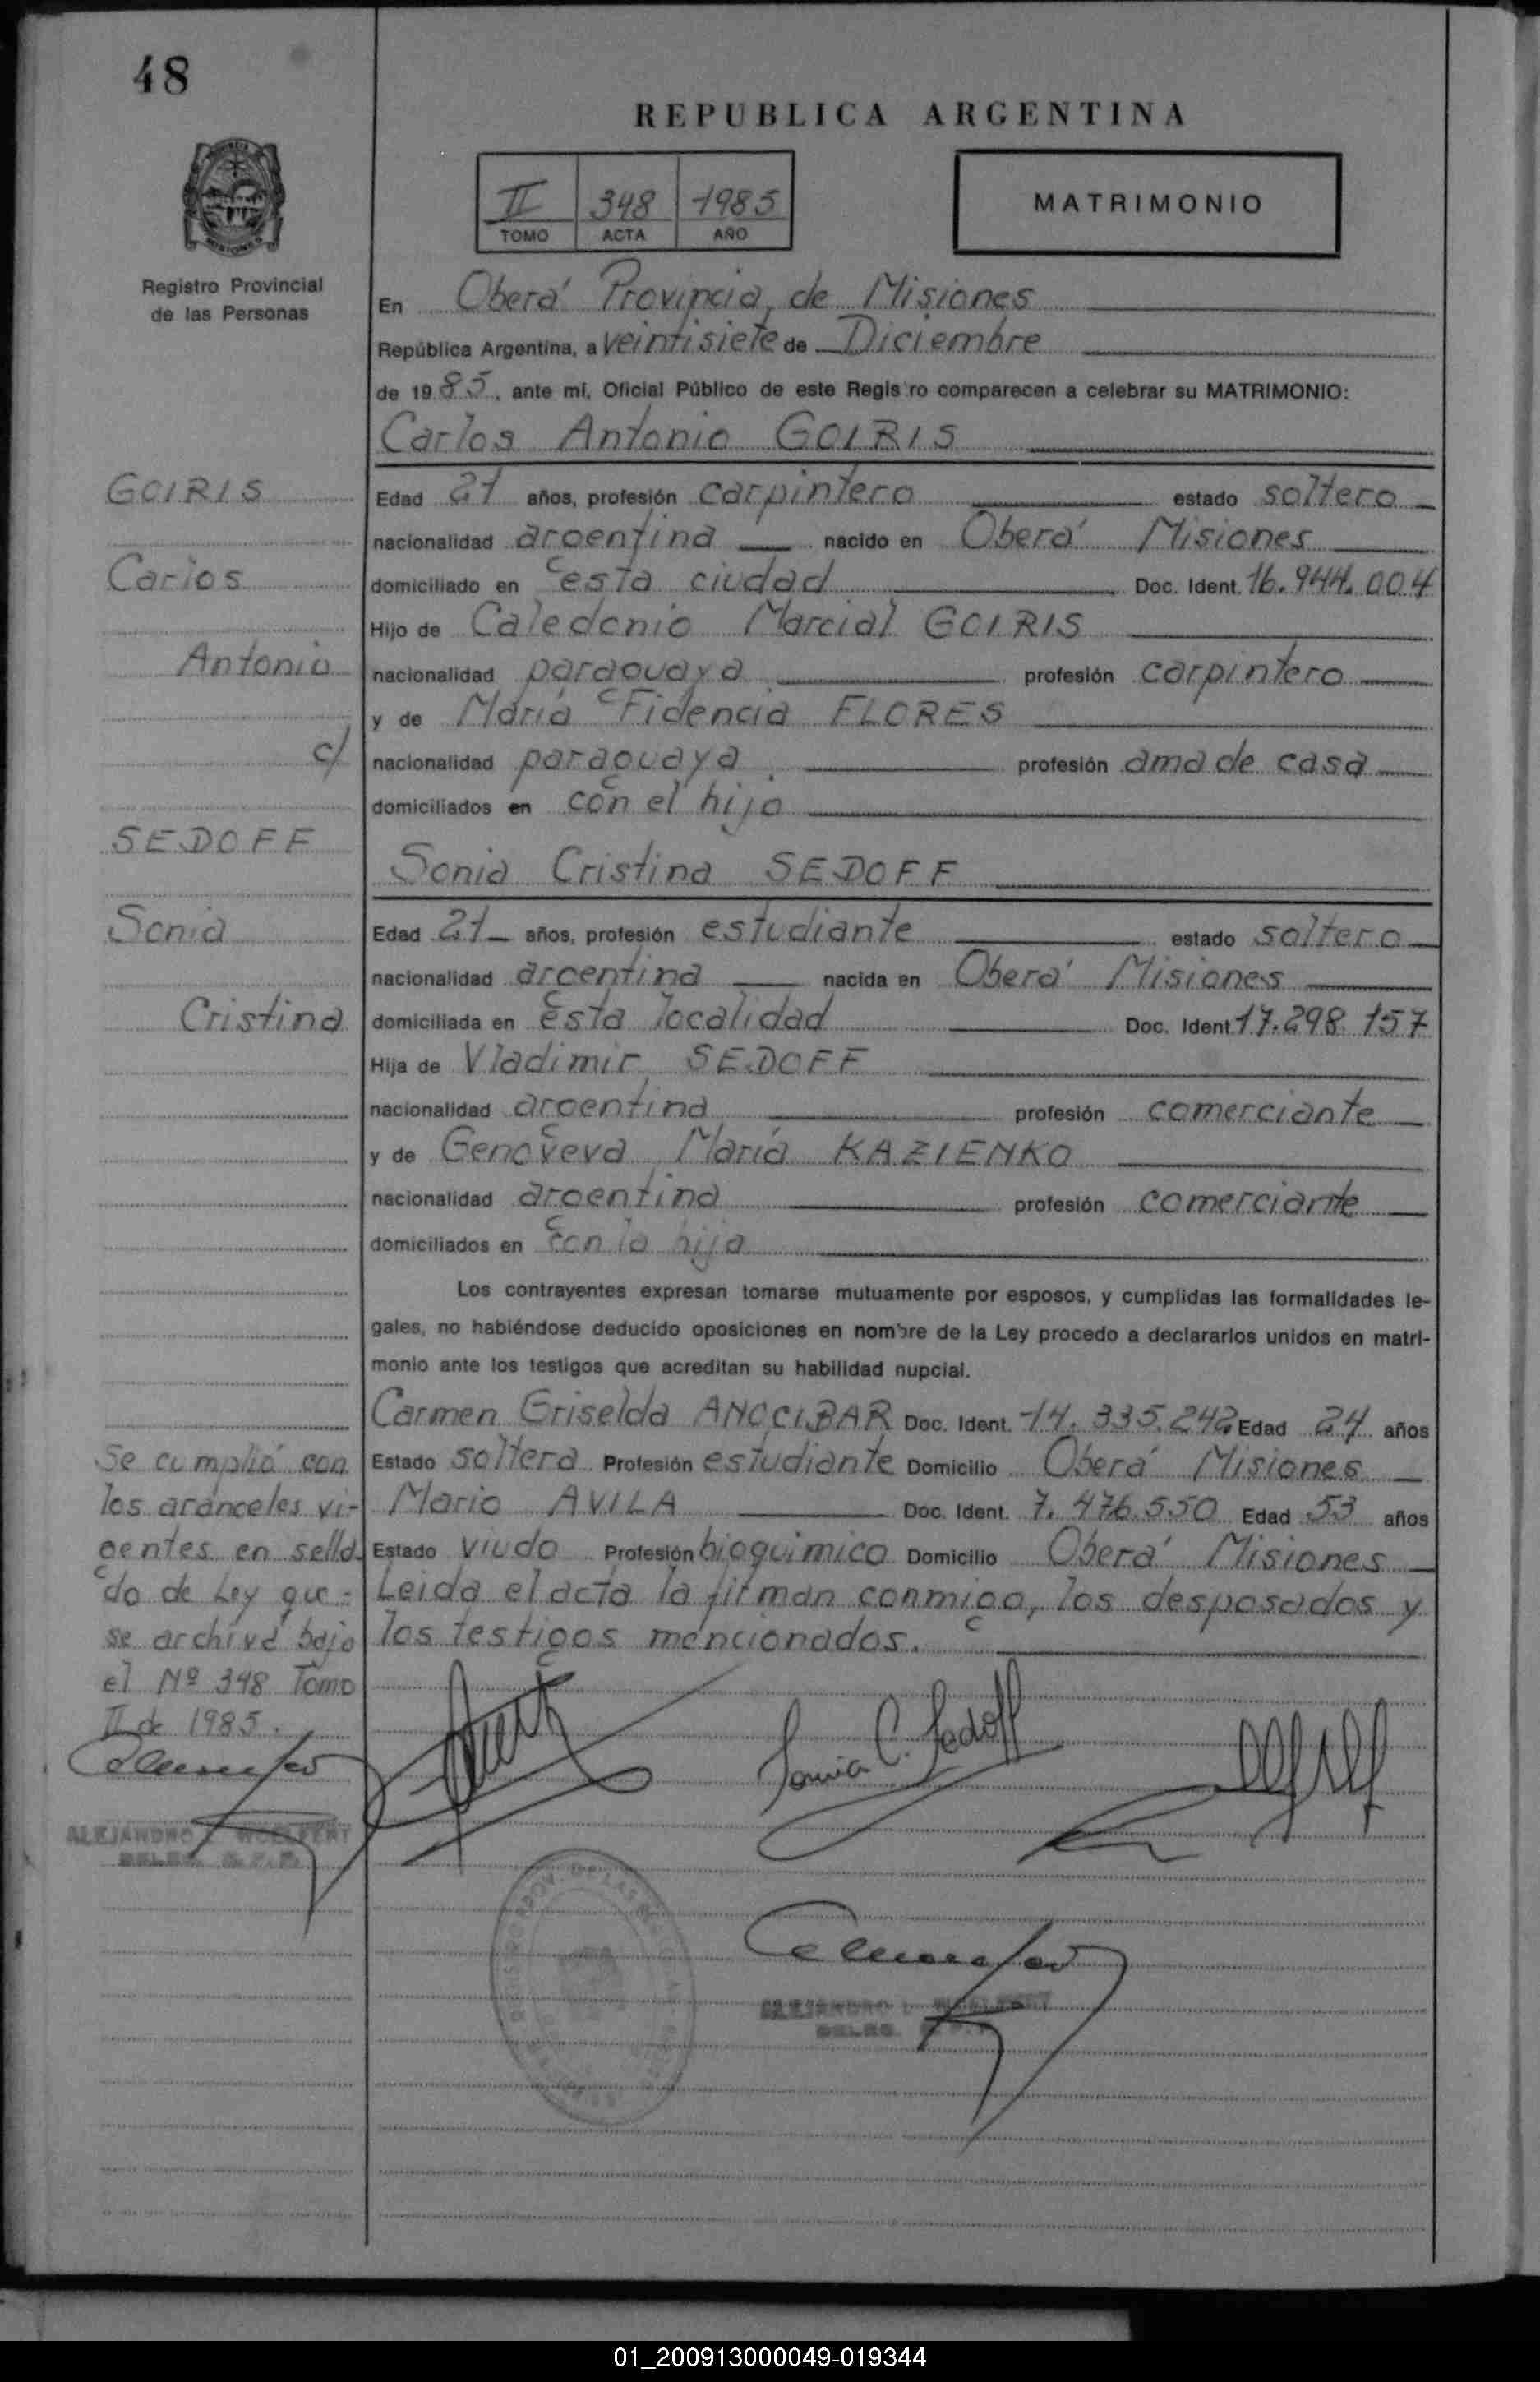 48
REPUBLICA ARGENTINA
II 348 1985
TOMO ACTA AÑO
MATRIMONIO
Registro Provincial
de las Personas
En Oberá Provincia de Misiones
República Argentina, a veintisiete de Diciembre
de 1985, ante mí, Oficial Público de este Registro comparecen a celebrar su MATRIMONIO:
Carlos Antonio GOIRIS
Edad 21 años, profesión carpintero estado soltero
nacionalidad argentina nacido en Oberá Misiones
domiciliado en esta ciudad Doc. Ident. 16.944.004
Hijo de Caledonio Marcial GOIRIS
nacionalidad paraguaya profesión carpintero
y de María Fidencia FLORES
nacionalidad paraguaya profesión ama de casa
domiciliados en con el hijo
Sonia Cristina SEDOFF
Edad 21 años, profesión estudiante estado soltero
nacionalidad argentina nacida en Oberá Misiones
domiciliada en esta localidad Doc. Ident. 17.298.157
Hija de Vladimir SEDOFF
nacionalidad argentina profesión comerciante
y de Genoveva María KAZIENKO
nacionalidad argentina profesión comerciante
domiciliados en con la hija
Los contrayentes expresan tomarse mutuamente por esposos, y cumplidas las formalidades le-
gales, no habiéndose deducido oposiciones en nombre de la Ley procedo a declararlos unidos en matri-
monio ante los testigos que acreditan su habilidad nupcial.
Carmen Griselda ANOCIBAR Doc. Ident. 14.335.242 Edad 24 años
Estado soltera Profesión estudiante Domicilio Oberá Misiones
Mario AVILA Doc. Ident. 7.476.550 Edad 53 años
Estado viudo Profesión bioquimico Domicilio Oberá Misiones
Leida el acta la firman conmigo, los desposados y
los testigos mencionados.
GOIRIS
Carlos
Antonio
c/
SEDOFF
Sonia
Cristina
Se cumplió con
los aránceles vi-
gentes en sella
do de Ley que
se archivá bajo
el Nº 348 Tomo
II de 1985.
Sonia C. Sedoff
ALEJANDRO L. WOELFERT
DELEG. R. P. P.
ALEJANDRO L. WOELFERT
DELEG.
01_200913000049-019344